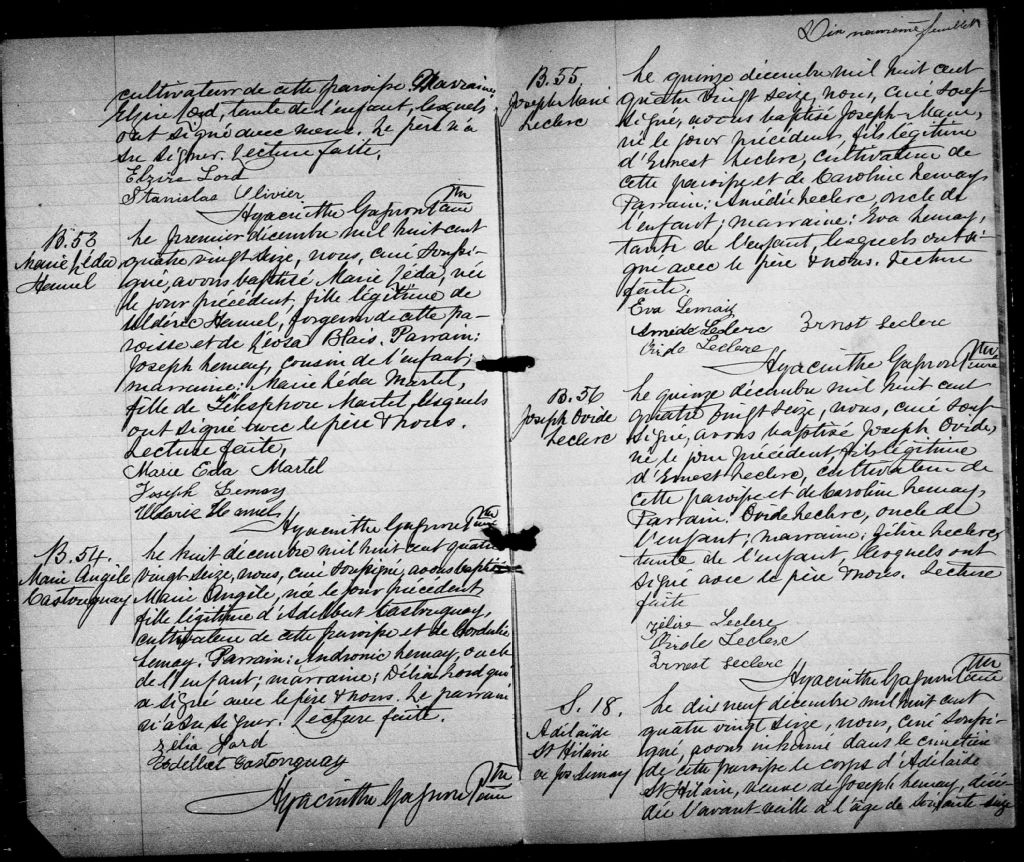 cultivateur de cette paroisse. Marraine:
Elzire Lord, tante de l'enfant, lesquels
ont signé avec nous. Le père n'a
su signer. Lecture faite.
Elzire Lord
Stanislas Olivier
Hyacinthe Gagnon Ptre Curé
B. 53
Marie Léda
Hamel
Le premier décembre mil huit cent
quatre vingt seize, nous, curé soussi-
gné, avons baptisé Marie Léda, née
le jour précédent, fille légitime de
Uldéric Hamel, forgeron de cette pa-
roisse et de Léosa Blais. Parrain:
Joseph Lemay, cousin de l'enfant;
marraine: Marie Léda Martel,
fille de Télesphore Martel, lesquels
ont signé avec le père & nous.
Lecture faite.
Marie Eda Martel
Joseph Lemay
Uldaric Hamel
Hyacinthe Gagnon Ptre Curé
B. 54.
Marie Angèle
Castonguay
Le huit décembre mil huit cent quatre
vingt seize, nous, curé soussigné, avons baptisé
Marie Angèle, née le jour précédent,
fille légitime d'Adelbert Castonguay,
cultivateur de cette paroisse et de Cordulie
Lemay. Parrain: Andronic Lemay, oncle
de l'enfant; marraine: Délia Lord qui
a signé avec le père & nous. Le parrain
n'a su signer. Lecture faite.
Zelia Lord
Castonguay
Hyacinthe Gagnon Ptre Curé
Dix neuvième feuillet
B. 55
Joseph Marie
Leclerc
Le quinze décembre mil huit cent
quatre vingt seize, nous, curé sous-
signé, avons baptisé Joseph Marie,
né le jour précédent, fils légitime
d'Ernest Leclerc, cultivateur de
cette paroisse et de Caroline Lemay.
Parrain: Amédée Leclerc, oncle de
l'enfant; marraine: Eva Lemay,
tante de l'enfant, lesquels ont si-
gné avec le père & nous. Lecture
faite.
Eva Lemay
Amédé Leclerc Ernst Leclerc
Ovide Leclerc
Hyacinthe Gagnon Ptre Curé
B. 56
Joseph Ovide
Leclerc
Le quinze décembre mil huit cent
quatre vingt seize, nous, curé sous-
signé, avons baptisé Joseph Ovide,
né le jour précédent, fils légitime
d'Ernest Leclerc, cultivateur de
cette paroisse et de Caroline Lemay.
Parrain: Ovide Leclerc, oncle de
l'enfant; marraine: Zélire Leclerc,
tante de l'enfant, lesquels ont
signé avec le père & nous. Lecture
faite
Zélire Leclerc
Ovide Leclerc
Ernest Leclerc
Hyacinthe Gagnon Ptre Curé
S. 18.
Adélaïde
St Hilaire
ve Jos Lemay
Le dix neuf décembre mil huit cent
quatre vingt seize, nous, curé soussi-
gné, avons inhumé dans le cimetière
de cette paroisse le corps d'Adélaïde
St Hilaire, veuve de Joseph Lemay, décé-
dée l'avant-veille à l'âge de soixante seize